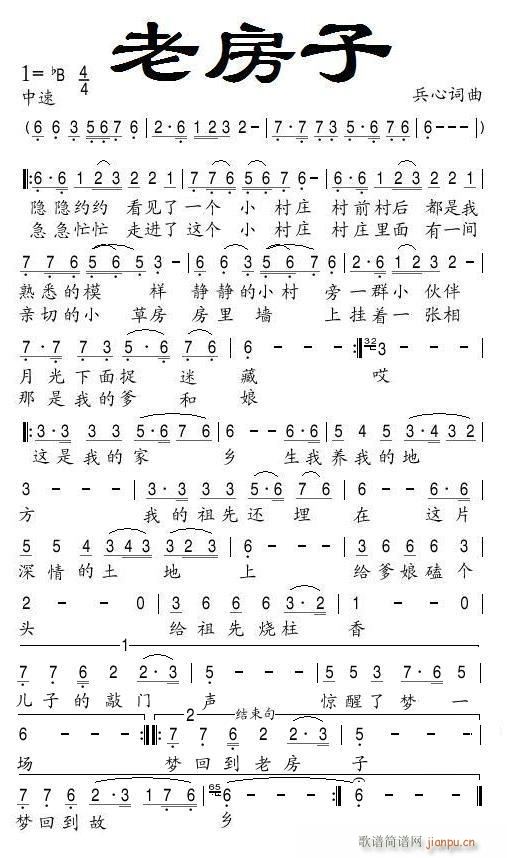 老房子
1=♭B 4/4
中速 兵心词曲
(6 6 3 5 6 7 6 | 2·6 1 2 3 2 - | 7·7 7 3 5·6 7 6 | 6 - - -)
‖: 6·6 1 2 3 2 2 1 | 7 7 6 5 3 5 6 7 6 - | 6·6 1 2 3 2 2 1
隐隐约约 看见了一个 小 村庄 村前村后 都是我
急急忙忙 走进了这个 小 村庄 村庄里面 有一间
7 7 6 5 6 5 3 - | 6 6 3 5 6 7 6 | 2·6 1 2 3 2 -
熟悉的模 样 静静的小村 旁一群小 伙伴
亲切的小 草房 房里墙 上挂着一 张相
7·7 7 3 5·6 7 6 | 6 - - :‖ 32 3
月光下面捉 迷 藏 哎
那是我的爹 和 娘
‖: 3·3 3 3 5·6 7 6 | 6 - - 6·6 | 5 4 5 3 4 3 2
这是我的家 乡 生我养我的地
3 - - - | 3·3 3 3 5·6 7 | 6 - - 6·6
方 我的祖先还 埋 在 这片
5 5 3 4 3 3 2 3 | 6 - - 6·6
深情的土 地 上 给爹娘磕个
2 - - 0 | 3 6 6 6 3·2 | 1 - - 0
头 给祖先烧柱 香
1
7 7 6 2·3 | 5 - - - | 5 3 5 7·6
儿子的敲门 声 惊醒了梦一
2 结束句
6 - - - :‖ 7 7 6 2·3 | 5 - - -
场 梦回到老房 子
7 7 6 2·3 1 7 6 | 65 6 - - - ‖
梦回到故 乡
歌谱简谱网
jianpu.cn